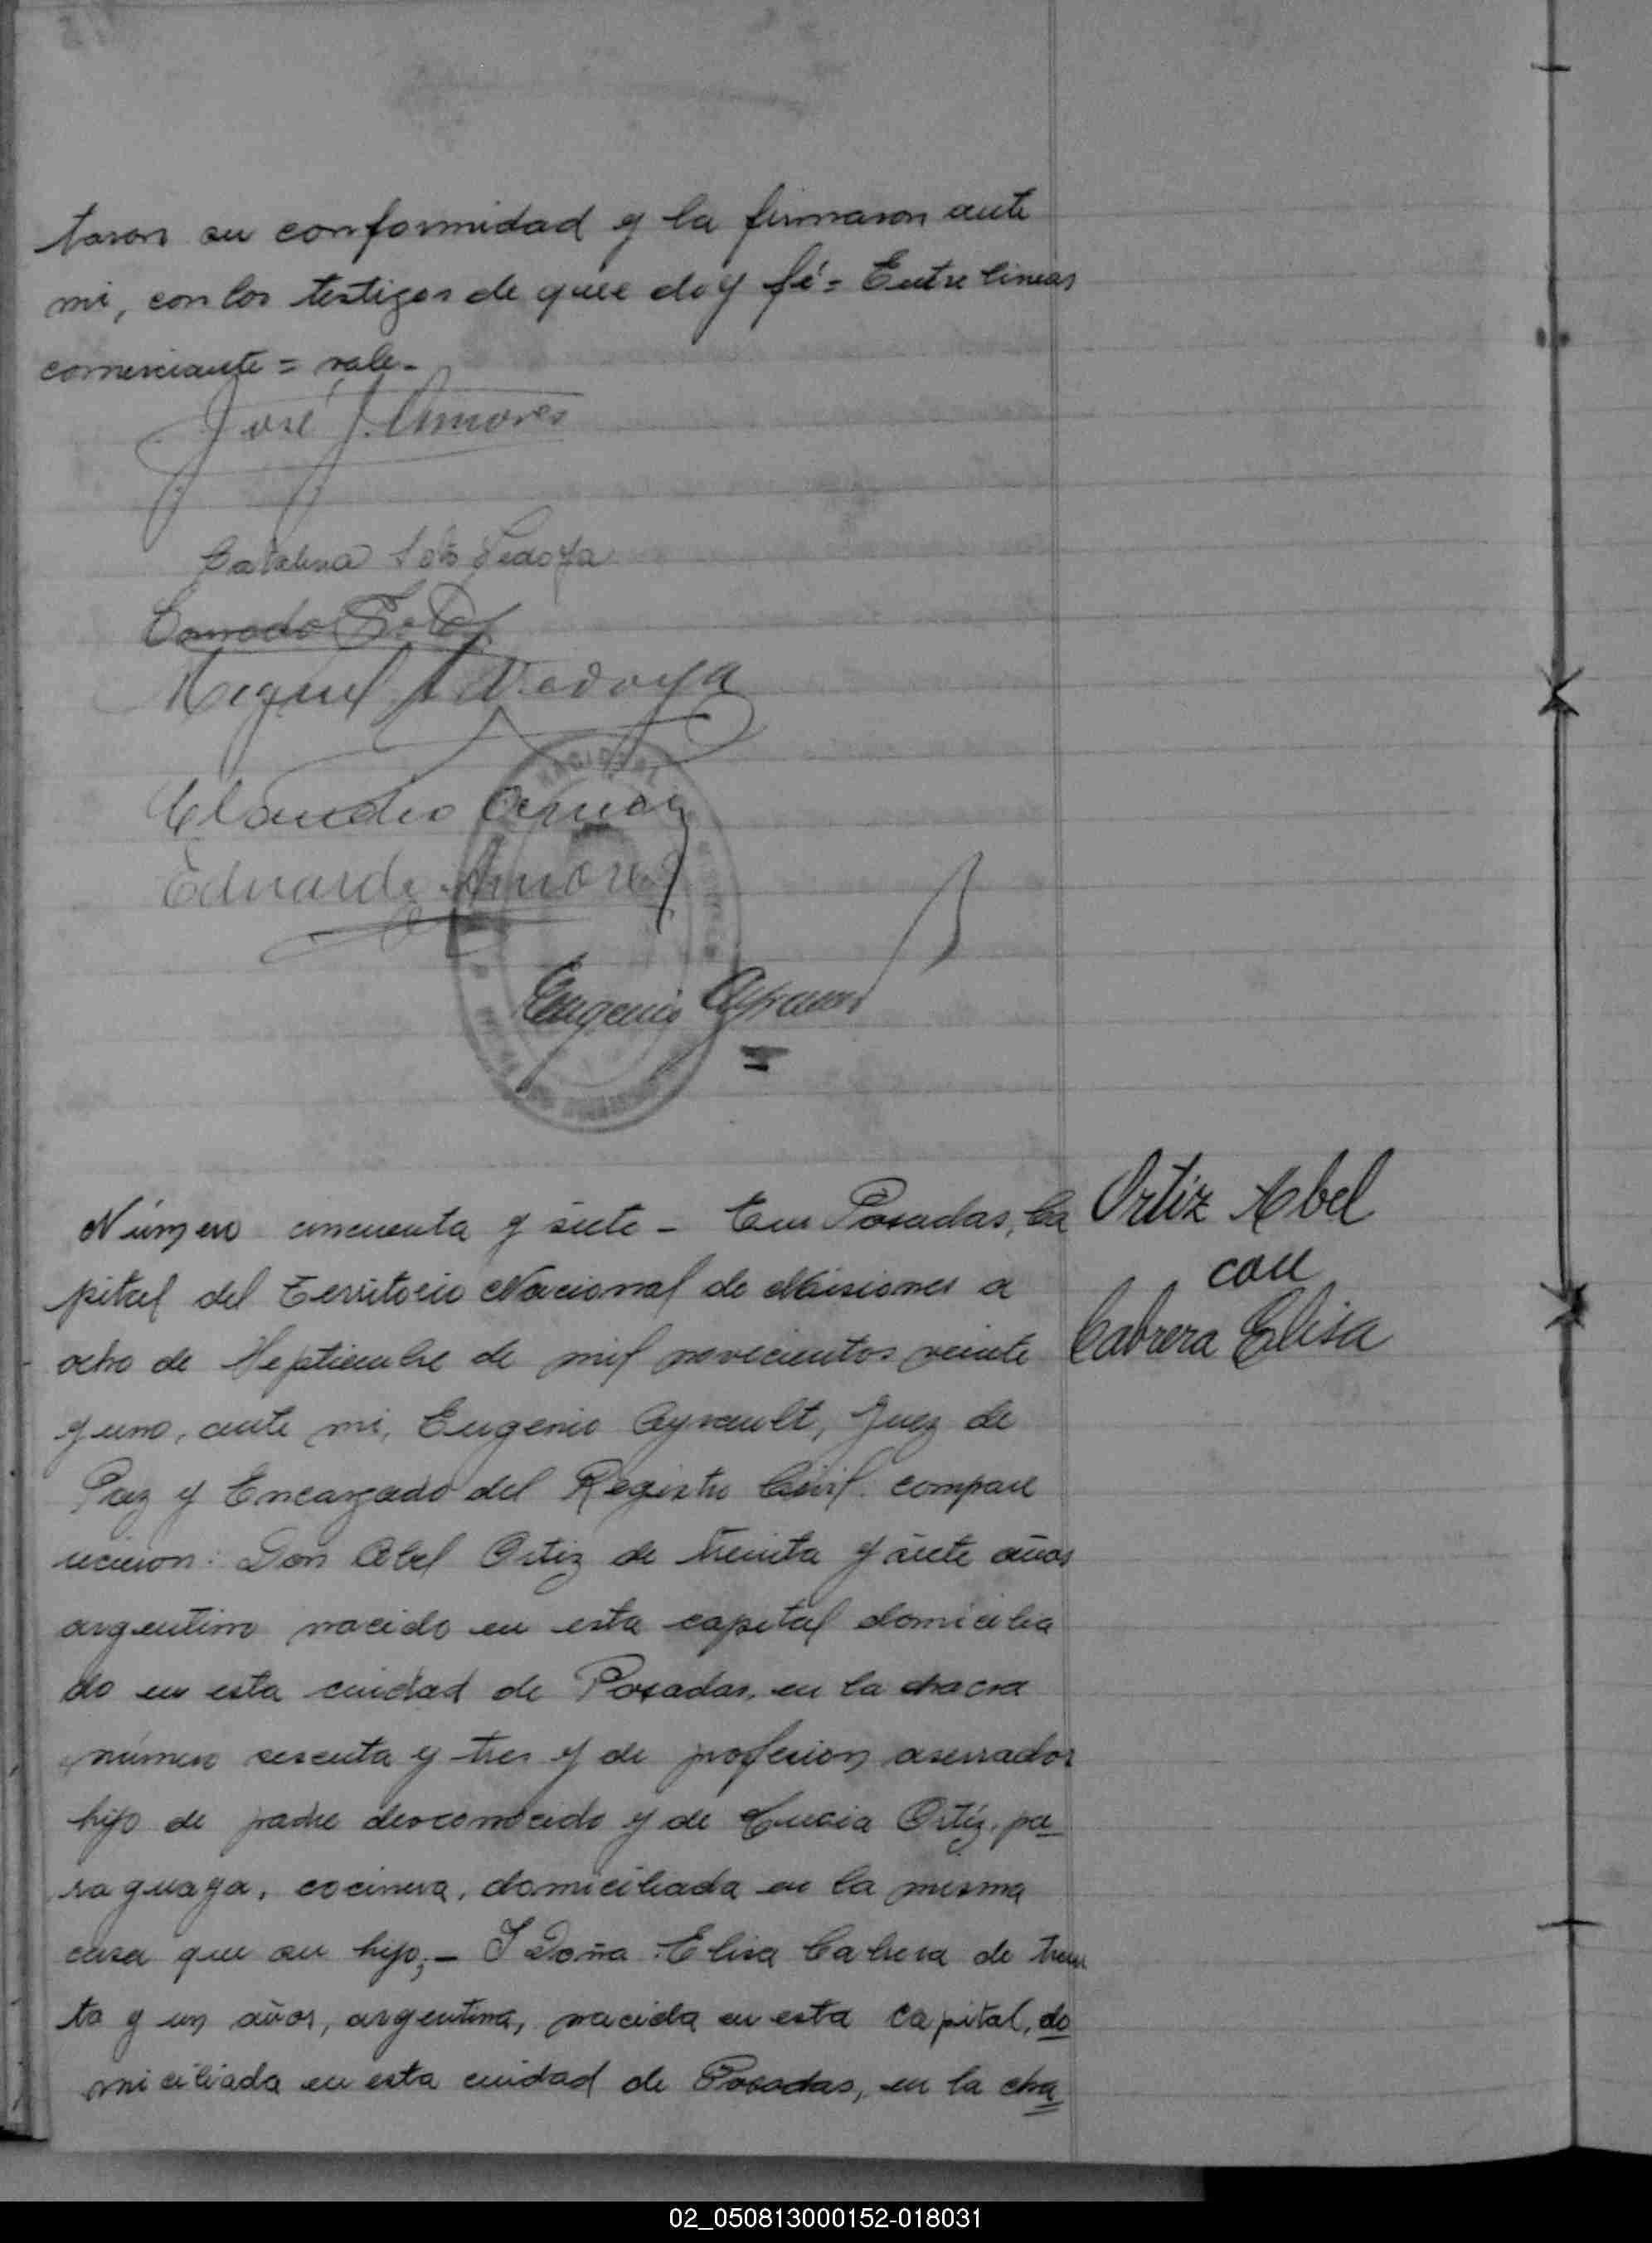 taron su conformidad y la firmaron ante
mi, con los testigos de que doy fé = Entre lineas
comerciante = vale -
José J. Amores
Catalina Bedoya
Conrado
Miguel A. Bedoya
Claudio
Eduardo Amores
NACIONAL
Eugenio Ayrault
Número cincuenta y siete - En Posadas, Ca
pital del Territorio Nacional de Misiones a
ocho de Septiembre de mil novecientos veinte
y uno, ante mi, Eugenio Ayrault, Juez de
Paz y Encargado del Registro Civil. compare
cieron: Don Abel Ortiz de treinta y siete años
argentino nacido en esta capital domicilia
do en esta ciudad de Posadas, en la chacra
número sesenta y tres y de profesion aserrador
hijo de padre desconocido y de Lucia Ortíz, pa
raguaya, cocinera, domiciliada en la misma
casa que su hijo; - Y Doña Elisa Cabrera de trein
ta y un años, argentina, nacida en esta capital, do
miciliada en esta ciudad de Posadas, en la cha
Ortiz Abel
con
Cabrera Elisa
02_050813000152-018031